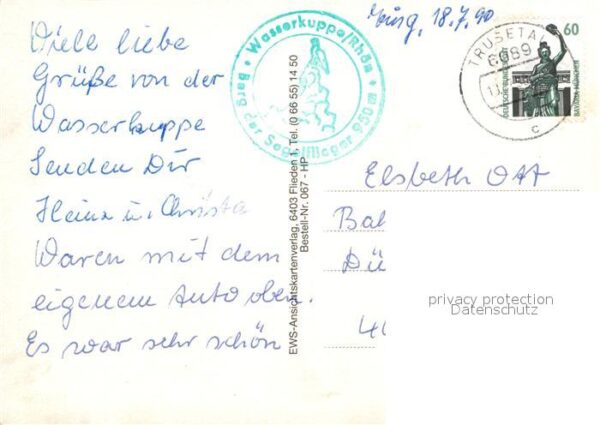 Viele liebe
Grüße von der
Wasserkuppe
Senden Dir
Heinz u. Christa
Waren mit dem
eigenem Auto oben.
Es war sehr schön
18.7.90
Wasserkuppe/Rhön
Berg der Segelflieger 950 m
TRUSETAL
6089
c
60
DEUTSCHE BUNDESPOST
BAVARIA MÜNCHEN
EWS-Ansichtskartenverlag, 6403 Flieden 1, Tel. (0 66 55) 14 50
Bestell-Nr. 067 - HP
Elsbeth Ott
privacy protection
Datenschutz